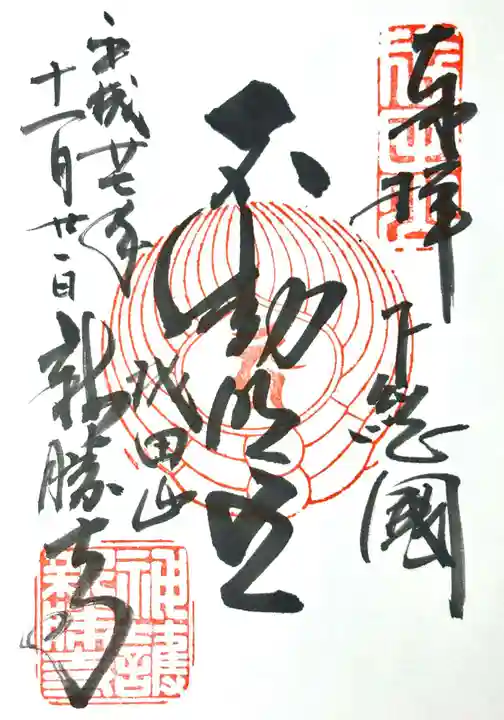 奉拝
下総國
不動明王
成田山
平成廿七年
十一月廿一日
新勝寺